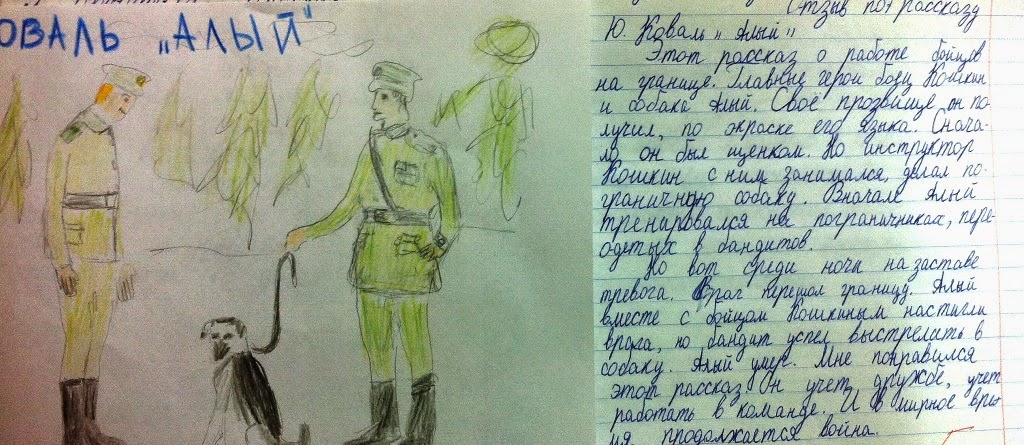 ОВАЛЬ „АЛЫЙ"
Отзыв по рассказу
Ю. Коваль „Алый"
Этот рассказ о работе бойцов
на границе. Главные герои боец Кошкин
и собака Алый. Своё прозвище, он по-
лучил, по окраске его языка. Снача-
ла он был щенком. Но инструктор
Кошкин с ним занимался, делал по-
граничную собаку. Вначале Алый
тренировался на пограничниках, пере-
одетых в бандитов.
Но вот среди ночи на заставе
тревога. Враг перешёл границу. Алый
вместе с бойцом Кошкиным настигли
врага, но бандит успел выстрелить в
собаку. Алый умер. Мне понравился
этот рассказ. Он учет дружбе, учет
работать в команде. И в мирное вре-
мя продолжается война.